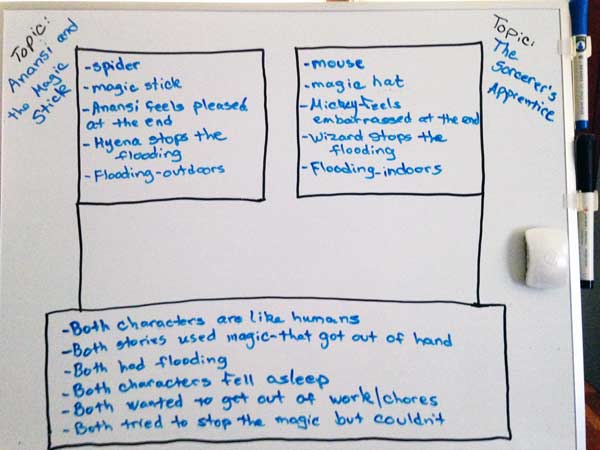 Topic:
Anansi and
the Magic
Stick
-spider
-magic stick
-Anansi feels pleased
at the end
-Hyena stops the
flooding
-Flooding-outdoors
Topic:
The
Sorcerer's
Apprentice
-mouse
-magic hat
-Mickey feels
embarrassed at the end
-Wizard stops the
flooding
-Flooding-indoors
-Both characters are like humans
-Both stories used magic-that got out of hand
-Both had flooding
-Both characters fell asleep
-Both wanted to get out of work/chores
-Both tried to stop the magic but couldn't